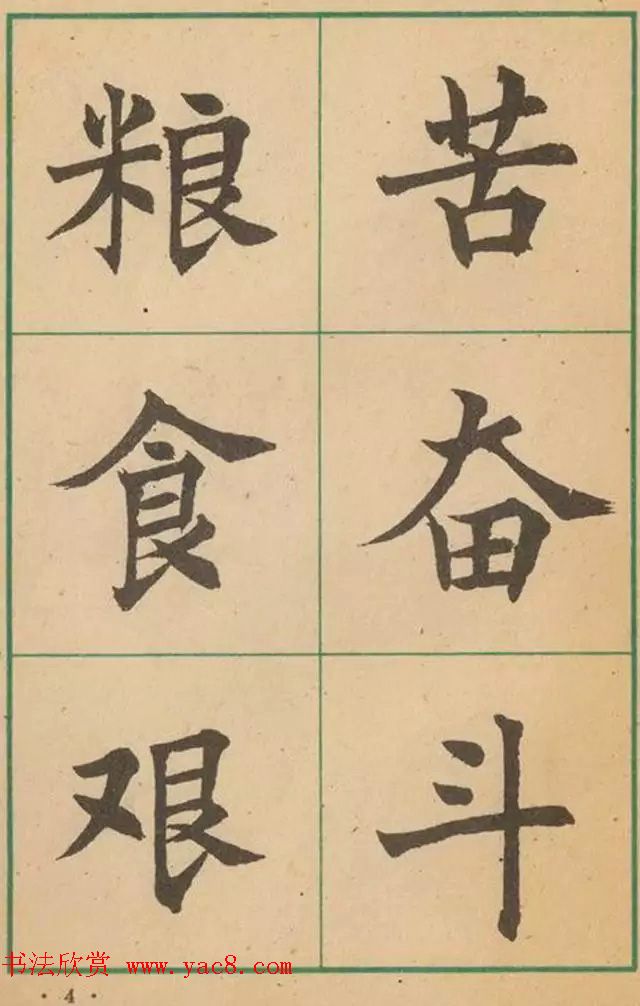 粮食艰
苦奋斗
书法欣赏 www.yac8.com
·4·